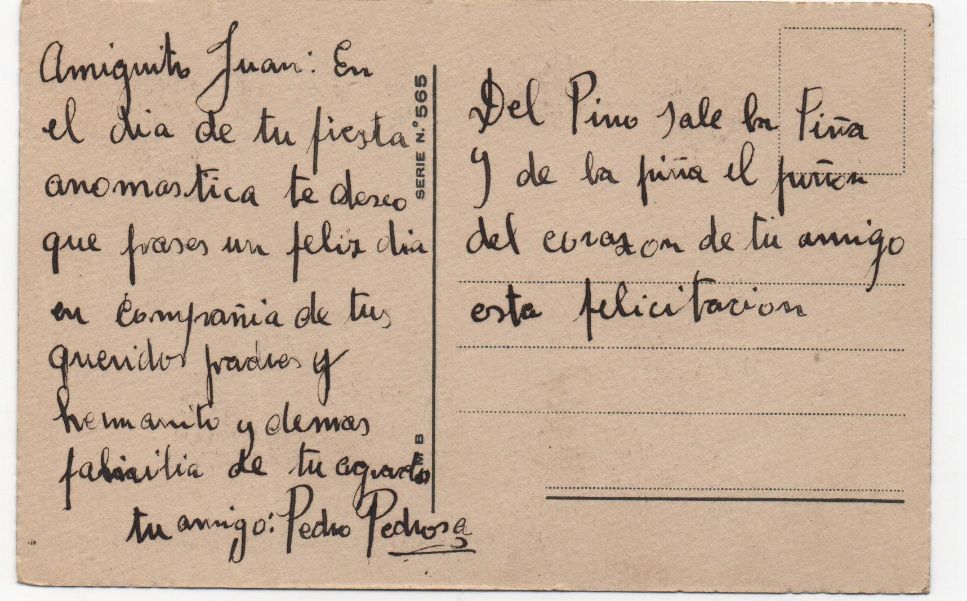 Amiguito Juan: En
el dia de tu fiesta
anomastica te deseo
que pases un feliz dia
en Compañia de tus
queridos padres y
hermanito y demas
familia de tu agrado
tu amigo: Pedro Pedrosa
SERIE N.º 565
B
Del Pino sale la Piña
y de la piña el piñon
del corazon de tu amigo
esta felicitacion